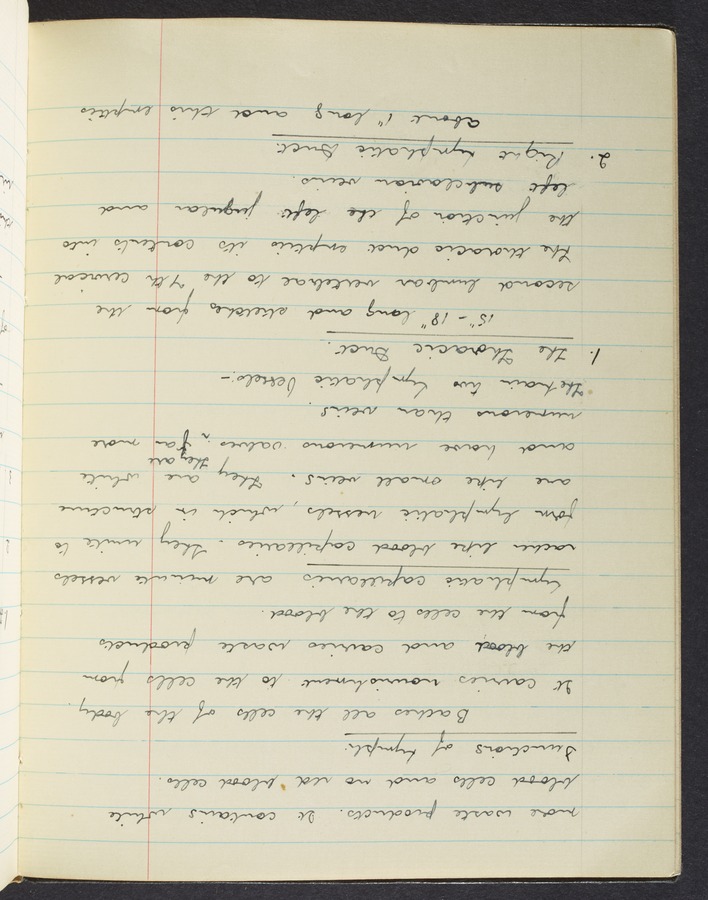 more waste products. It contains white
blood cells and no red blood cells.
Functions of Lymph:
Bathes all the cells of the body.
It carries nourishment to the cells from
the blood and carries waste products
from the cells to the blood.
Lymphatic capillaries are minute vessels
rather like blood capillaries. They unite to
form lymphatic vessels, which in structure
are like small veins. They are white
and have numerous valves, they are far more
numerous than veins.
The main two Lymphatic Vessels:-
1. The Thoracic Duct.
15" - 18" long and stretches from the
second lumbar vertebrae to the 7th cervical
the thoracic duct empties its contents into
the junction of the left jugular and
left subclavian veins.
2. Right Lymphatic Duct.
about 1" long and this empties